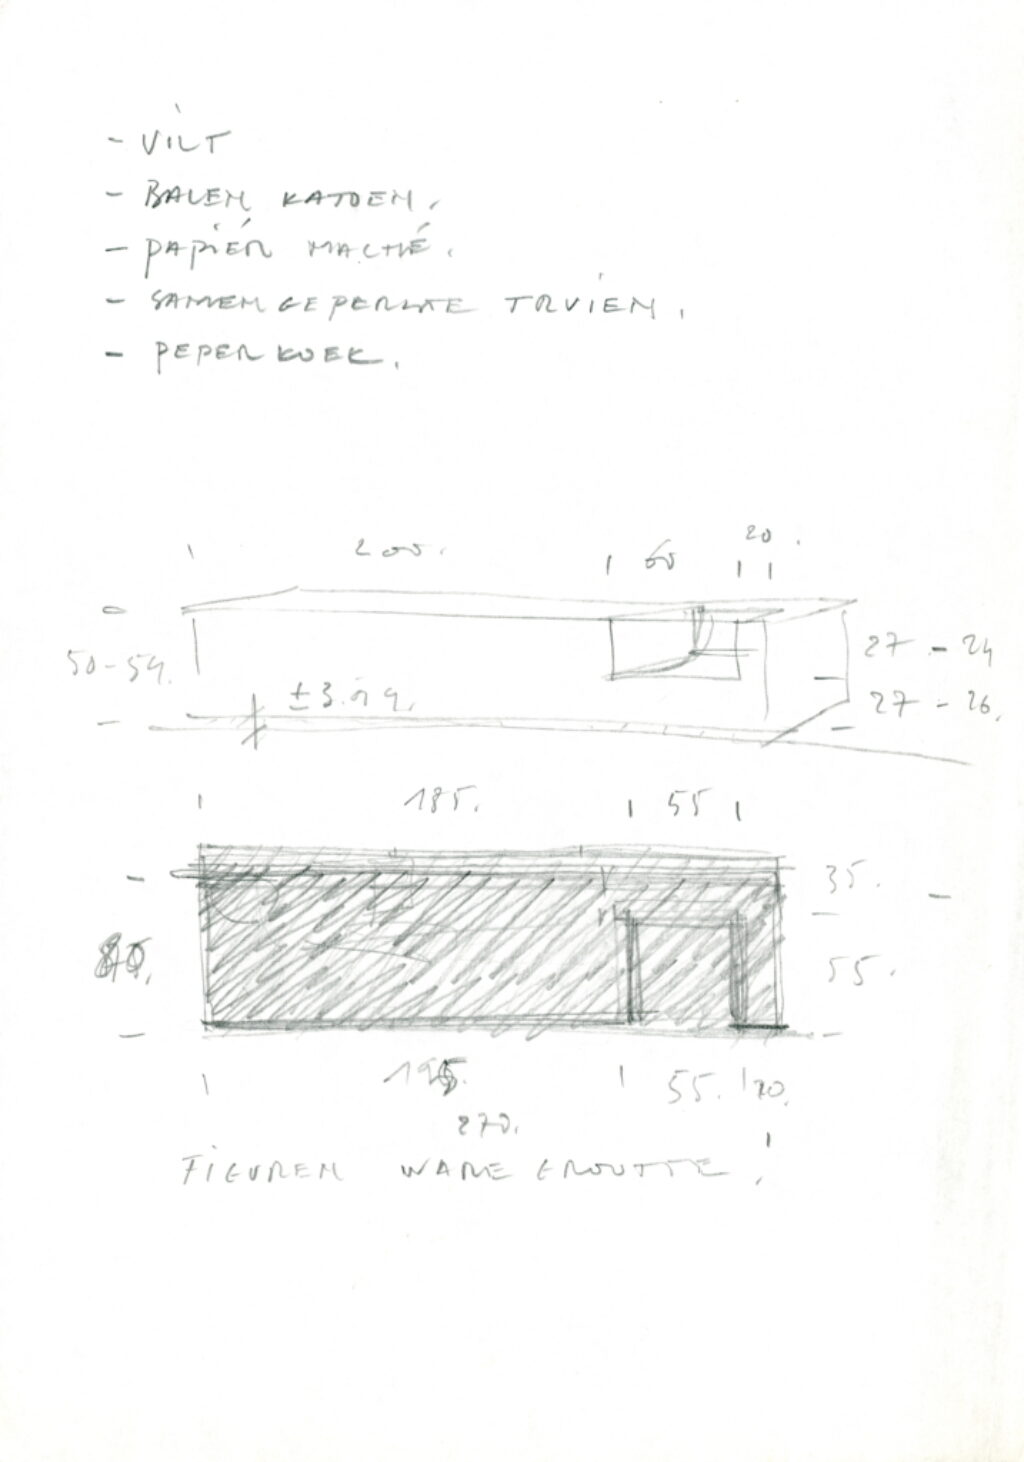 - VILT
- BALEN KATOEN.
- PAPIER MACHÉ.
- SAMENGEPERSTE TRUIEN.
- PEPERKOEK.
200. 60 20.
50-54.
27 - 24
± 3.
27 - 26.
185. 55
35.
55.
195. 55. 20.
270.
FIGUREN WARE GROOTTE!